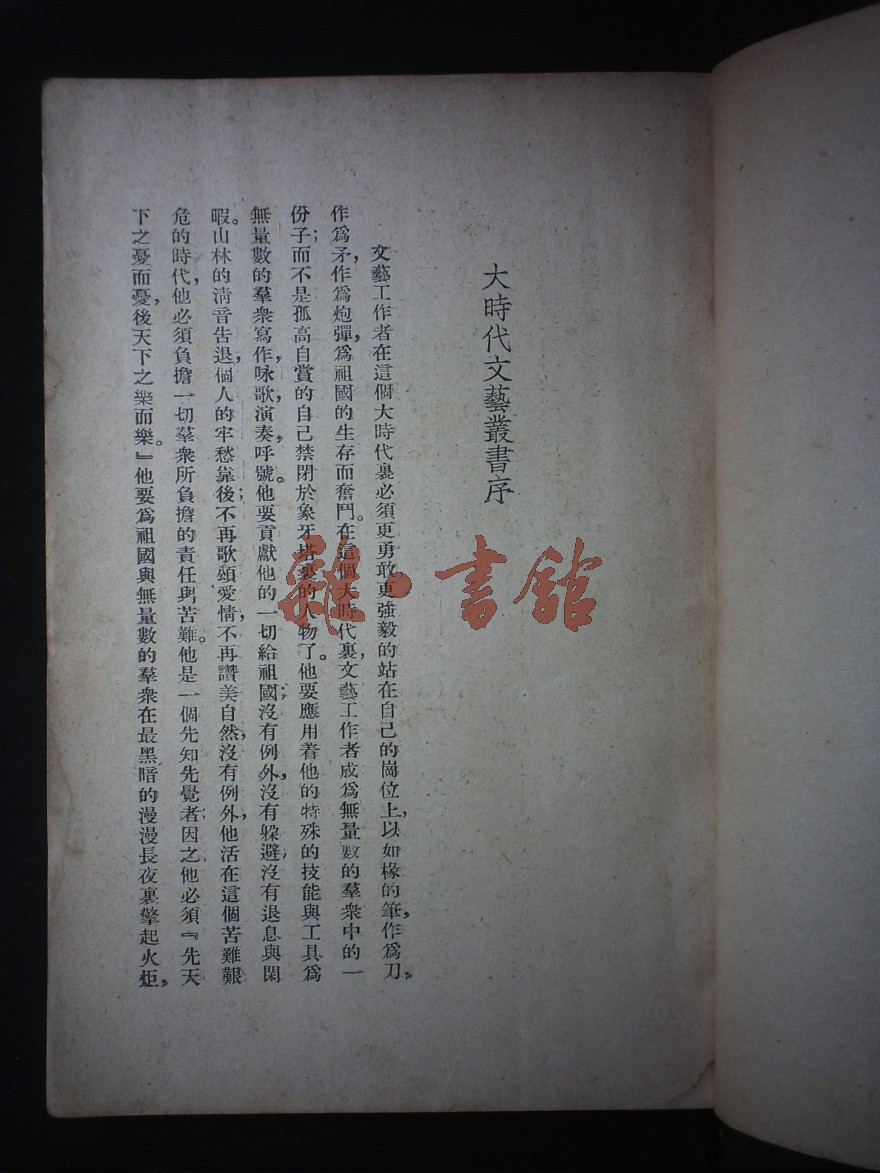 大時代文藝叢書序
文藝工作者在這個大時代裏必須更勇敢更強毅的站在自己的崗位上，以如椽的筆，作爲刀，
作爲矛，作爲炮彈，爲祖國的生存而奮鬥。在這個大時代裏，文藝工作者成爲無量數的羣衆中的一
份子；而不是孤高自賞的自己禁閉於象牙塔裏的人物了。他要應用着他的特殊的技能與工具爲
無量數的羣衆寫作，咏歌，演奏，呼號。他要貢獻他的一切給祖國；沒有例外，沒有躱避，沒有退息與閑
暇。山林的淸音吿退，個人的牢愁靠後；不再歌頌愛情，不再讚美自然，沒有例外，他活在這個苦難艱
危的時代，他必須負擔一切羣衆所負擔的責任與苦難。他是一個先知先覺者；因之，他必須『先天
下之憂而憂，後天下之樂而樂。』他要爲祖國與無量數的羣衆在最黑暗的漫漫長夜裏擎起火炬，
雜·書館